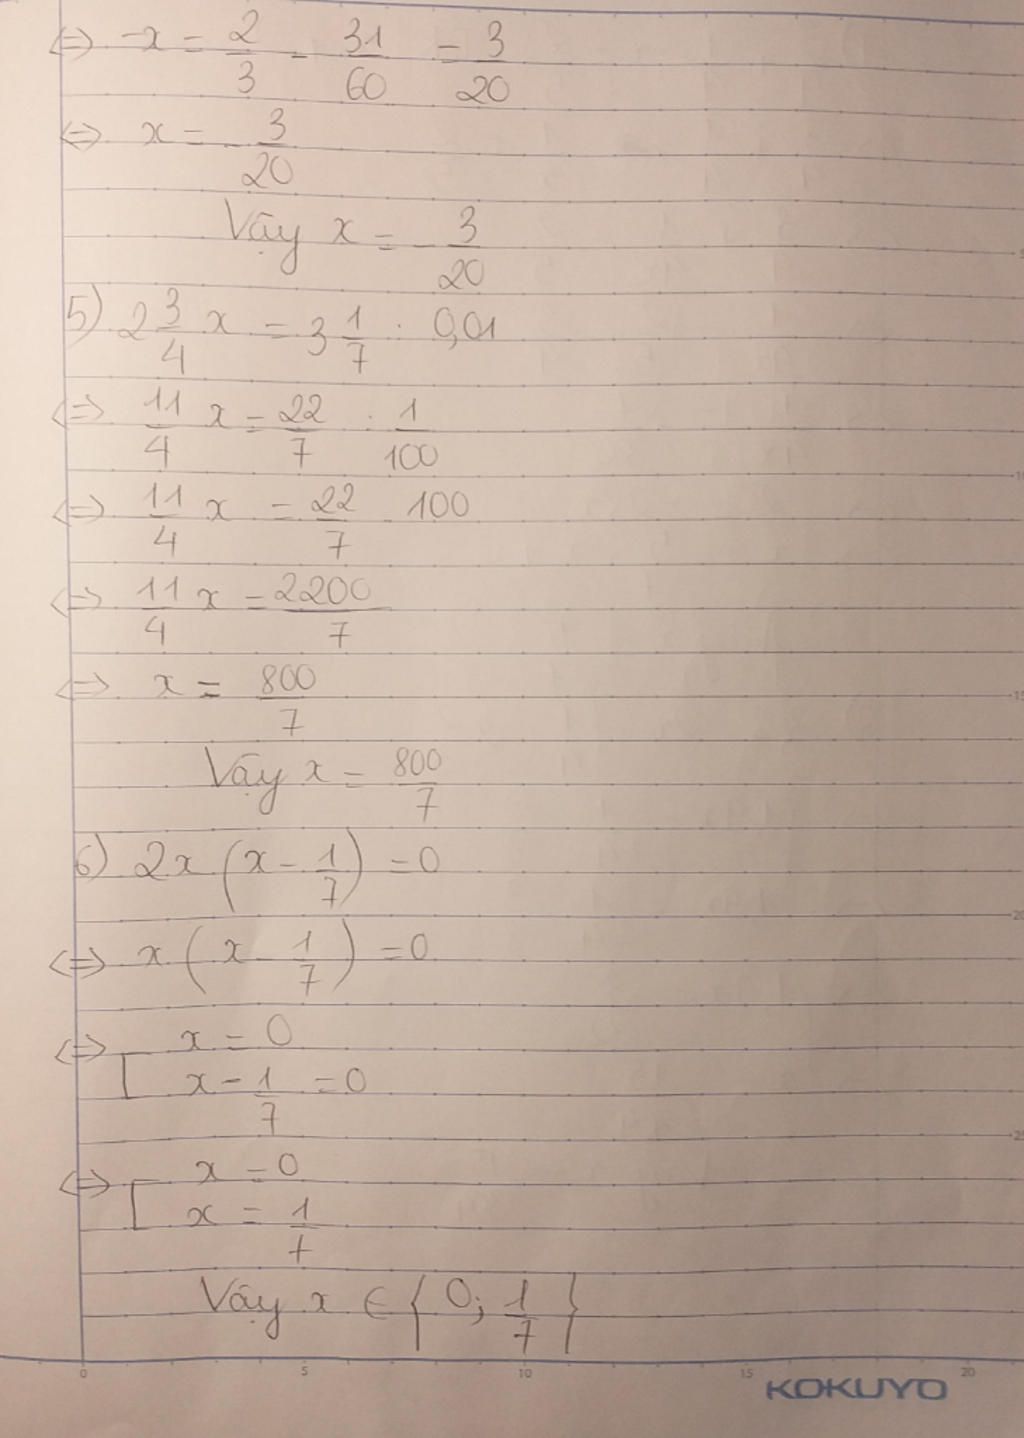 ⇔ -x = 2/3 - 31/60 = 3/20
⇔ x = -3/20
Vậy x = -3/20
5) 2 3/4 x = 3 1/7 : 0,01
⇔ 11/4 x = 22/7 : 1/100
⇔ 11/4 x = 22/7 100
⇔ 11/4 x = 2200/7
⇔ x = 800/7
Vậy x = 800/7
6) 2x (x - 1/7) = 0
⇔ x (x - 1/7) = 0
⇔ [ x = 0
x - 1/7 = 0
⇔ [ x = 0
x = 1/7
Vậy x ∈ { 0; 1/7 }
0 5 10 15 20
KOKUYO